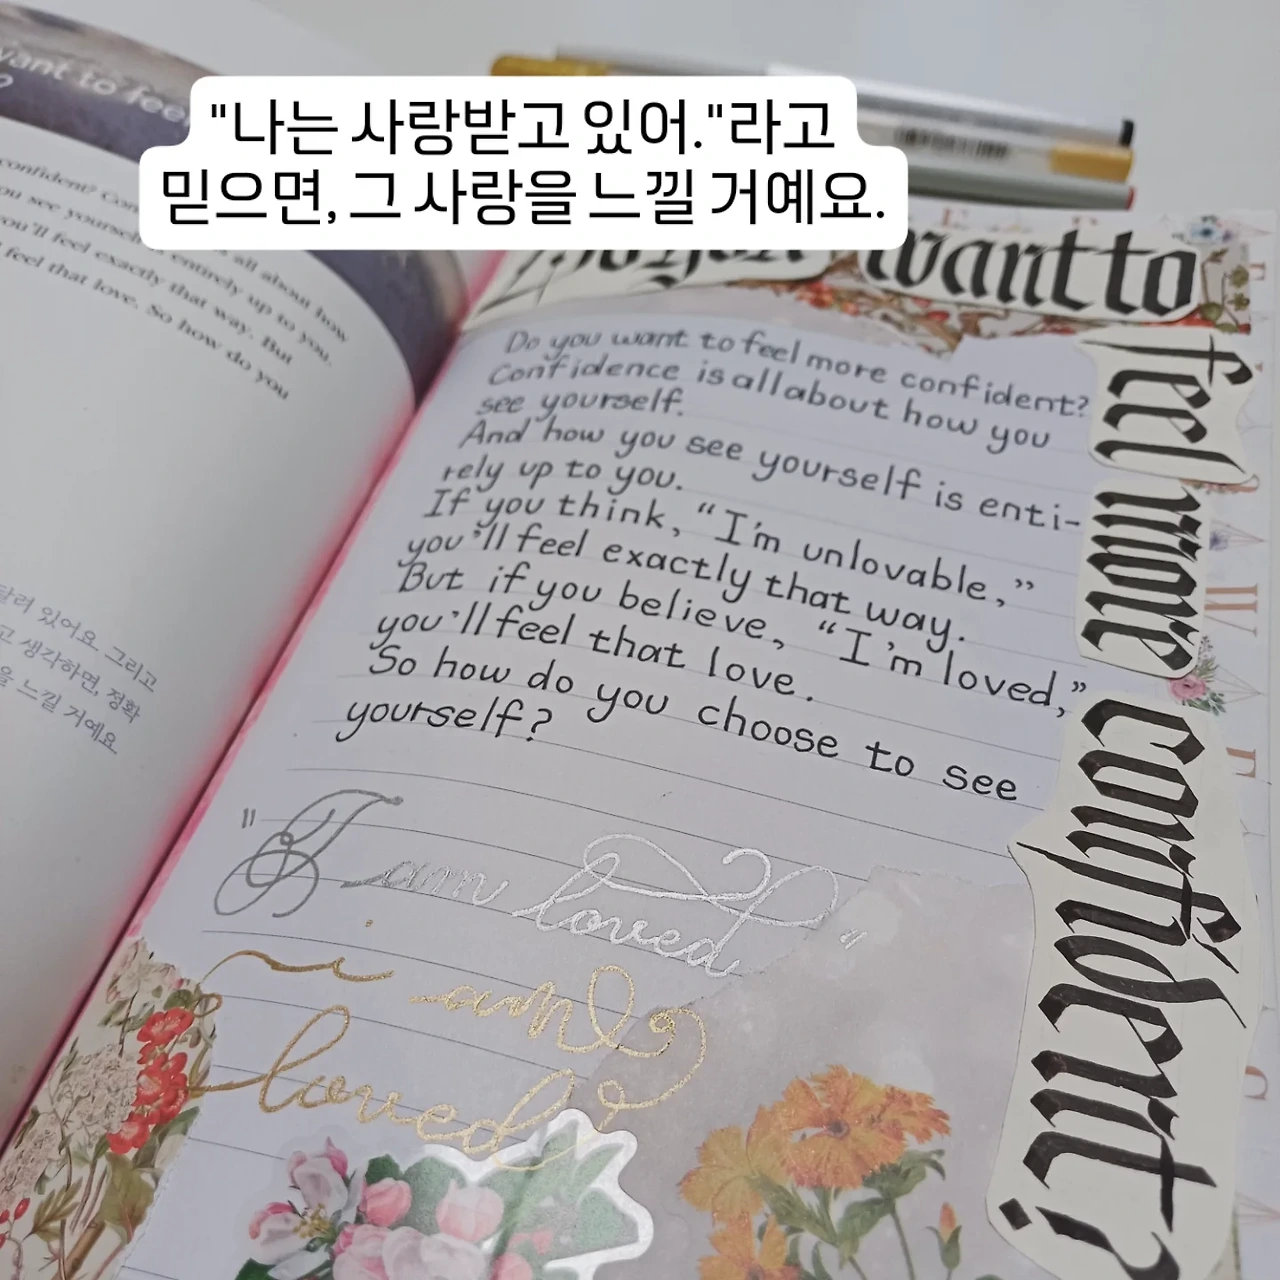 "나는 사랑받고 있어."라고
믿으면, 그 사랑을 느낄 거예요.
want to feel
?
confident? Con
you see yourself
all about how
entirely up to you.
you'll feel exactly that way. But
feel that love. So how do you
달려 있어요. 그리고
고 생각하면, 정확
을 느낄 거예요
Do you want to
feel
more
confident?
Do you want to feel more confident?
Confidence is all about how you
see yourself.
And how you see yourself is enti-
rely up to you.
If you think, “I'm unlovable,”
you'll feel exactly that way.
But if you believe, “I'm loved,”
you'll feel that love.
So how do you choose to see
yourself?
"I am loved"
i am
loved